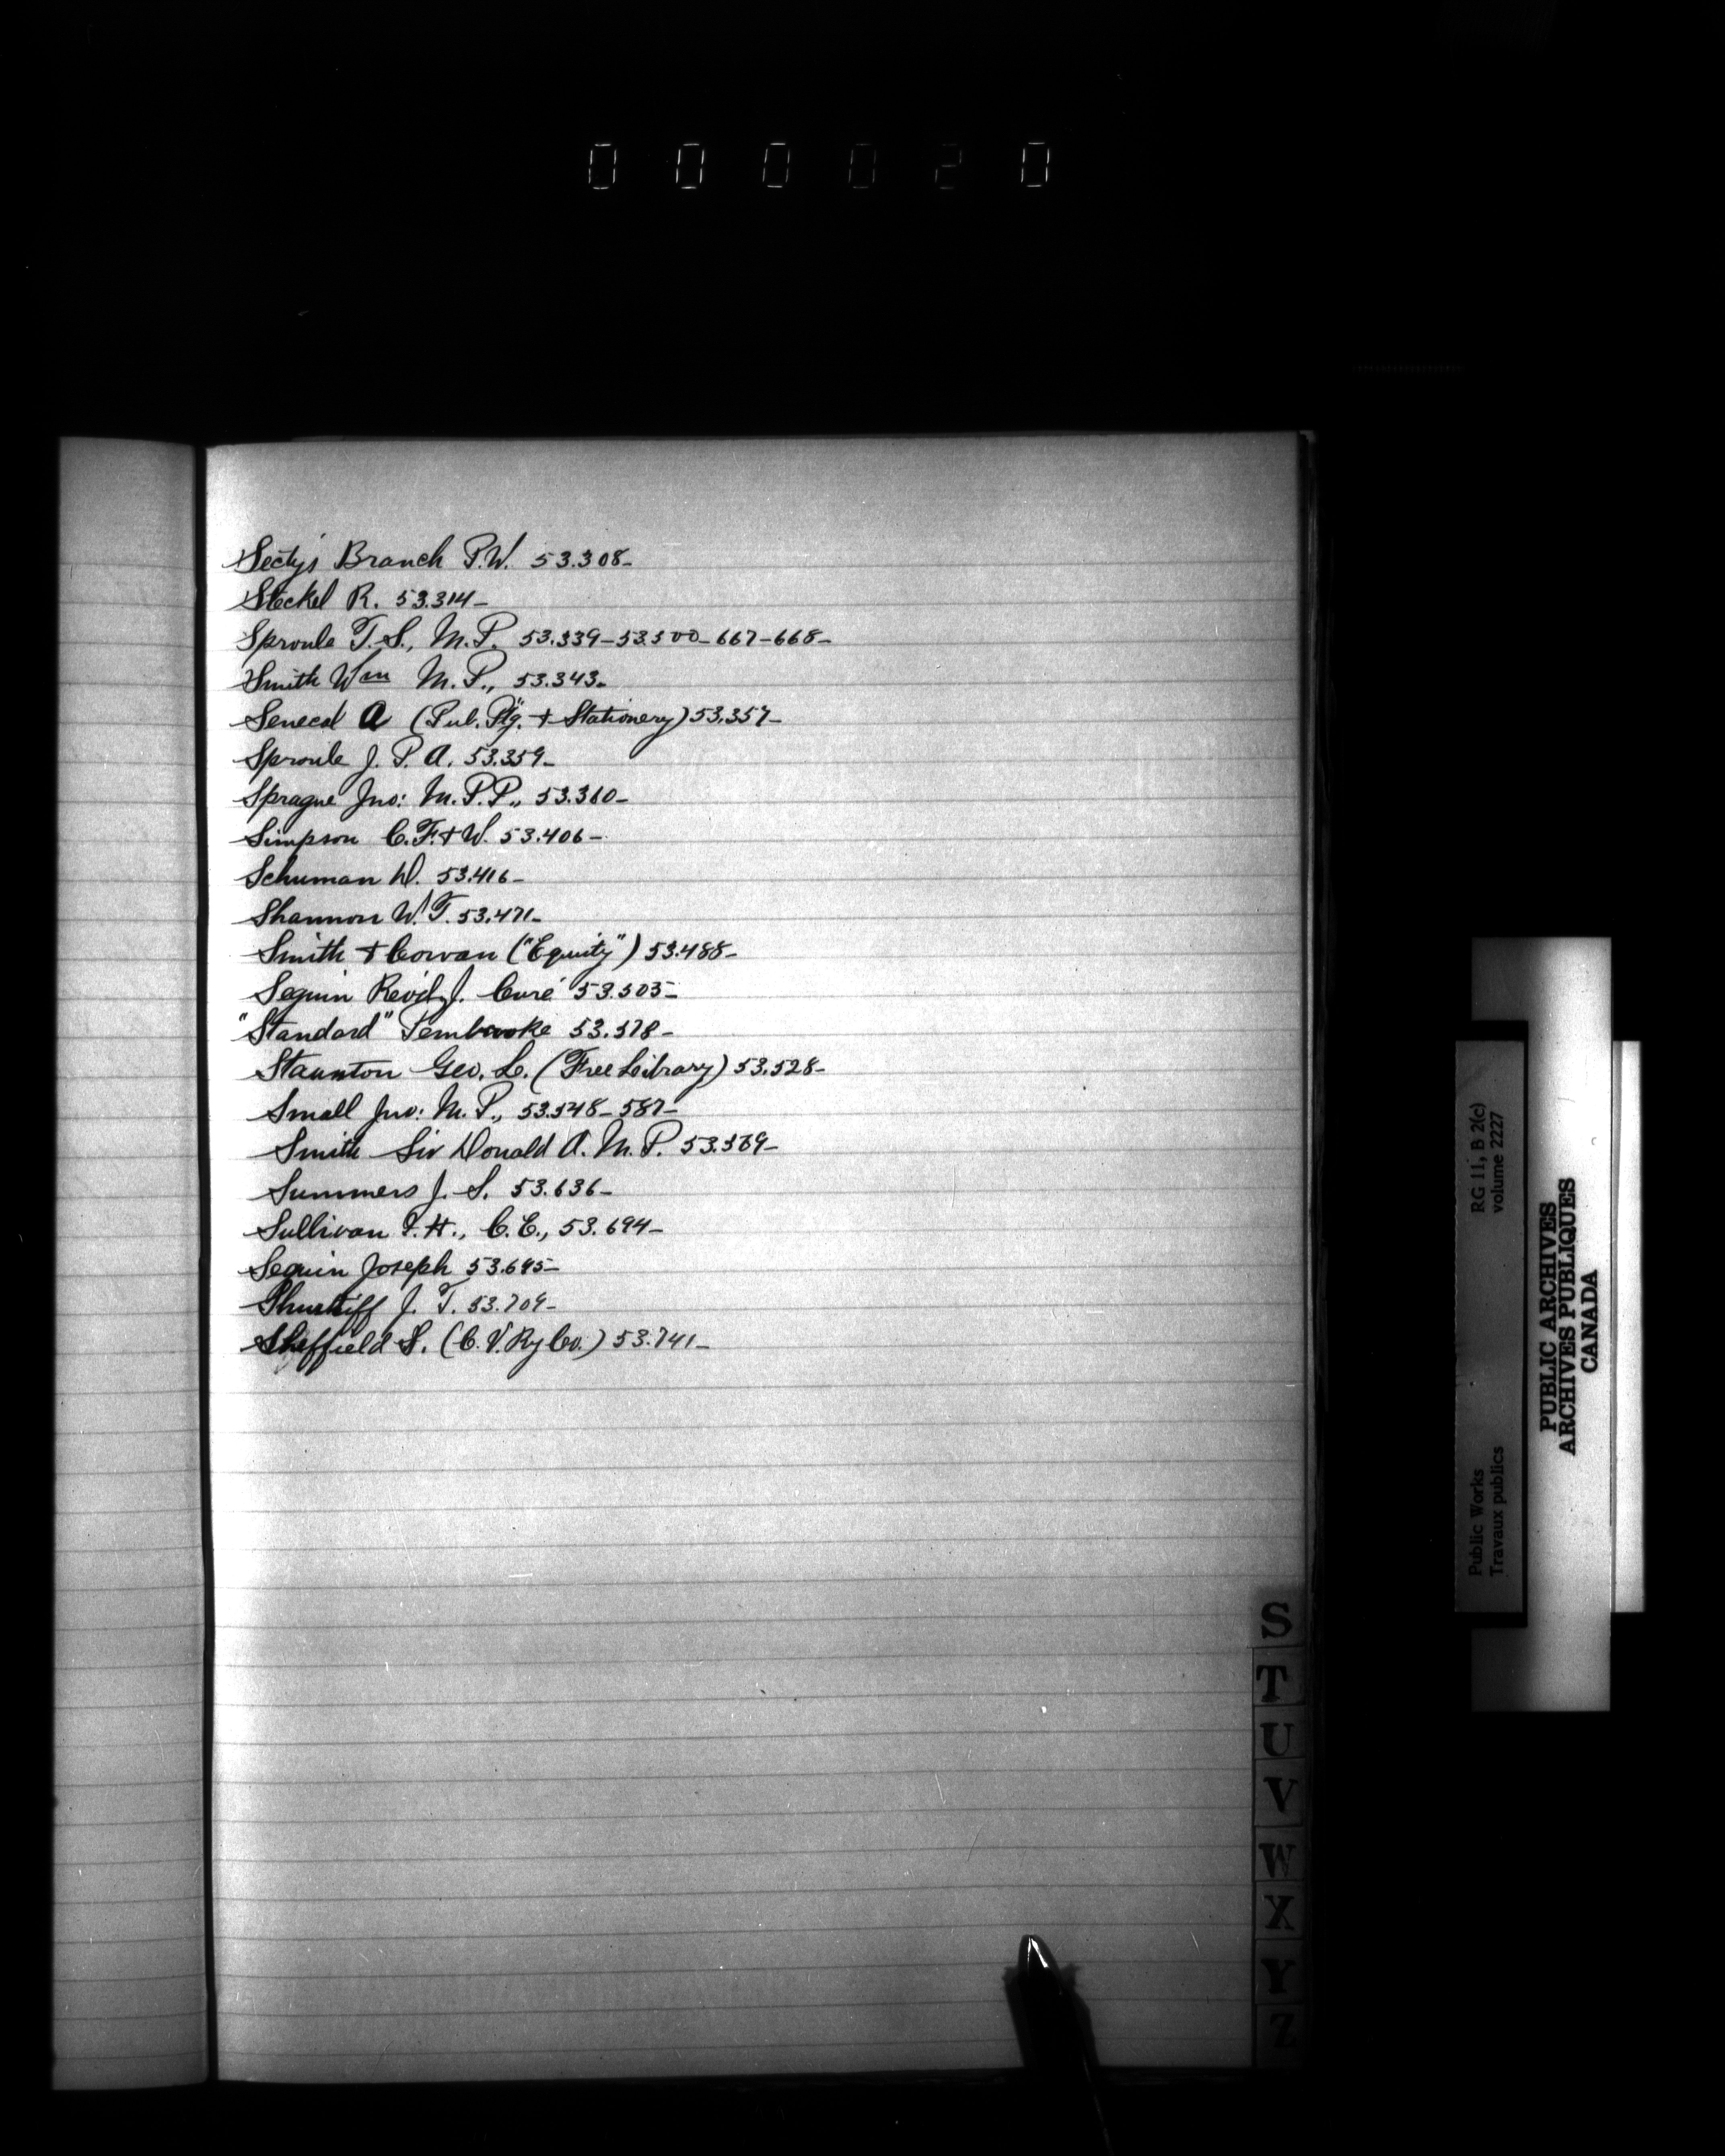 000020
Secty's Branch P.W. 53.308-
Steckel R. 53.314-
Sproule T.S., M.P. 53.339-53.500-667-668-
Smith Wm M.P., 53.343-
Senecal A (Pub. Ptg. + Stationery) 53.357-
Sproule J. P. A. 53.359-
Sprague Jno: M.P.P., 53.360-
Simpson C.F. + W. 53.406-
Schuman W. 53.416-
Shannon W.T. 53.471-
Smith + Cowan ("Equity") 53.488-
Seguin J. Curé 53.505-
"Standard" Pembroke 53.518-
Staunton Geo. L. (Free Library) 53.528-
Small Jno: M.P., 53.548-587-
Smith Sir Donald A. M.P. 53.569-
Summers J. S. 53.636-
Sullivan J.H., C.E., 53.694-
Seguin Joseph 53.695-
Shurtliff J. T. 53.709-
Sheffield S. (C.V. Ry Co.) 53.741-
S
T
U
V
W
X
Y
Z
RG 11, B 2(c)
volume 2227
Public Works
Travaux publics
PUBLIC ARCHIVES
ARCHIVES PUBLIQUES
CANADA